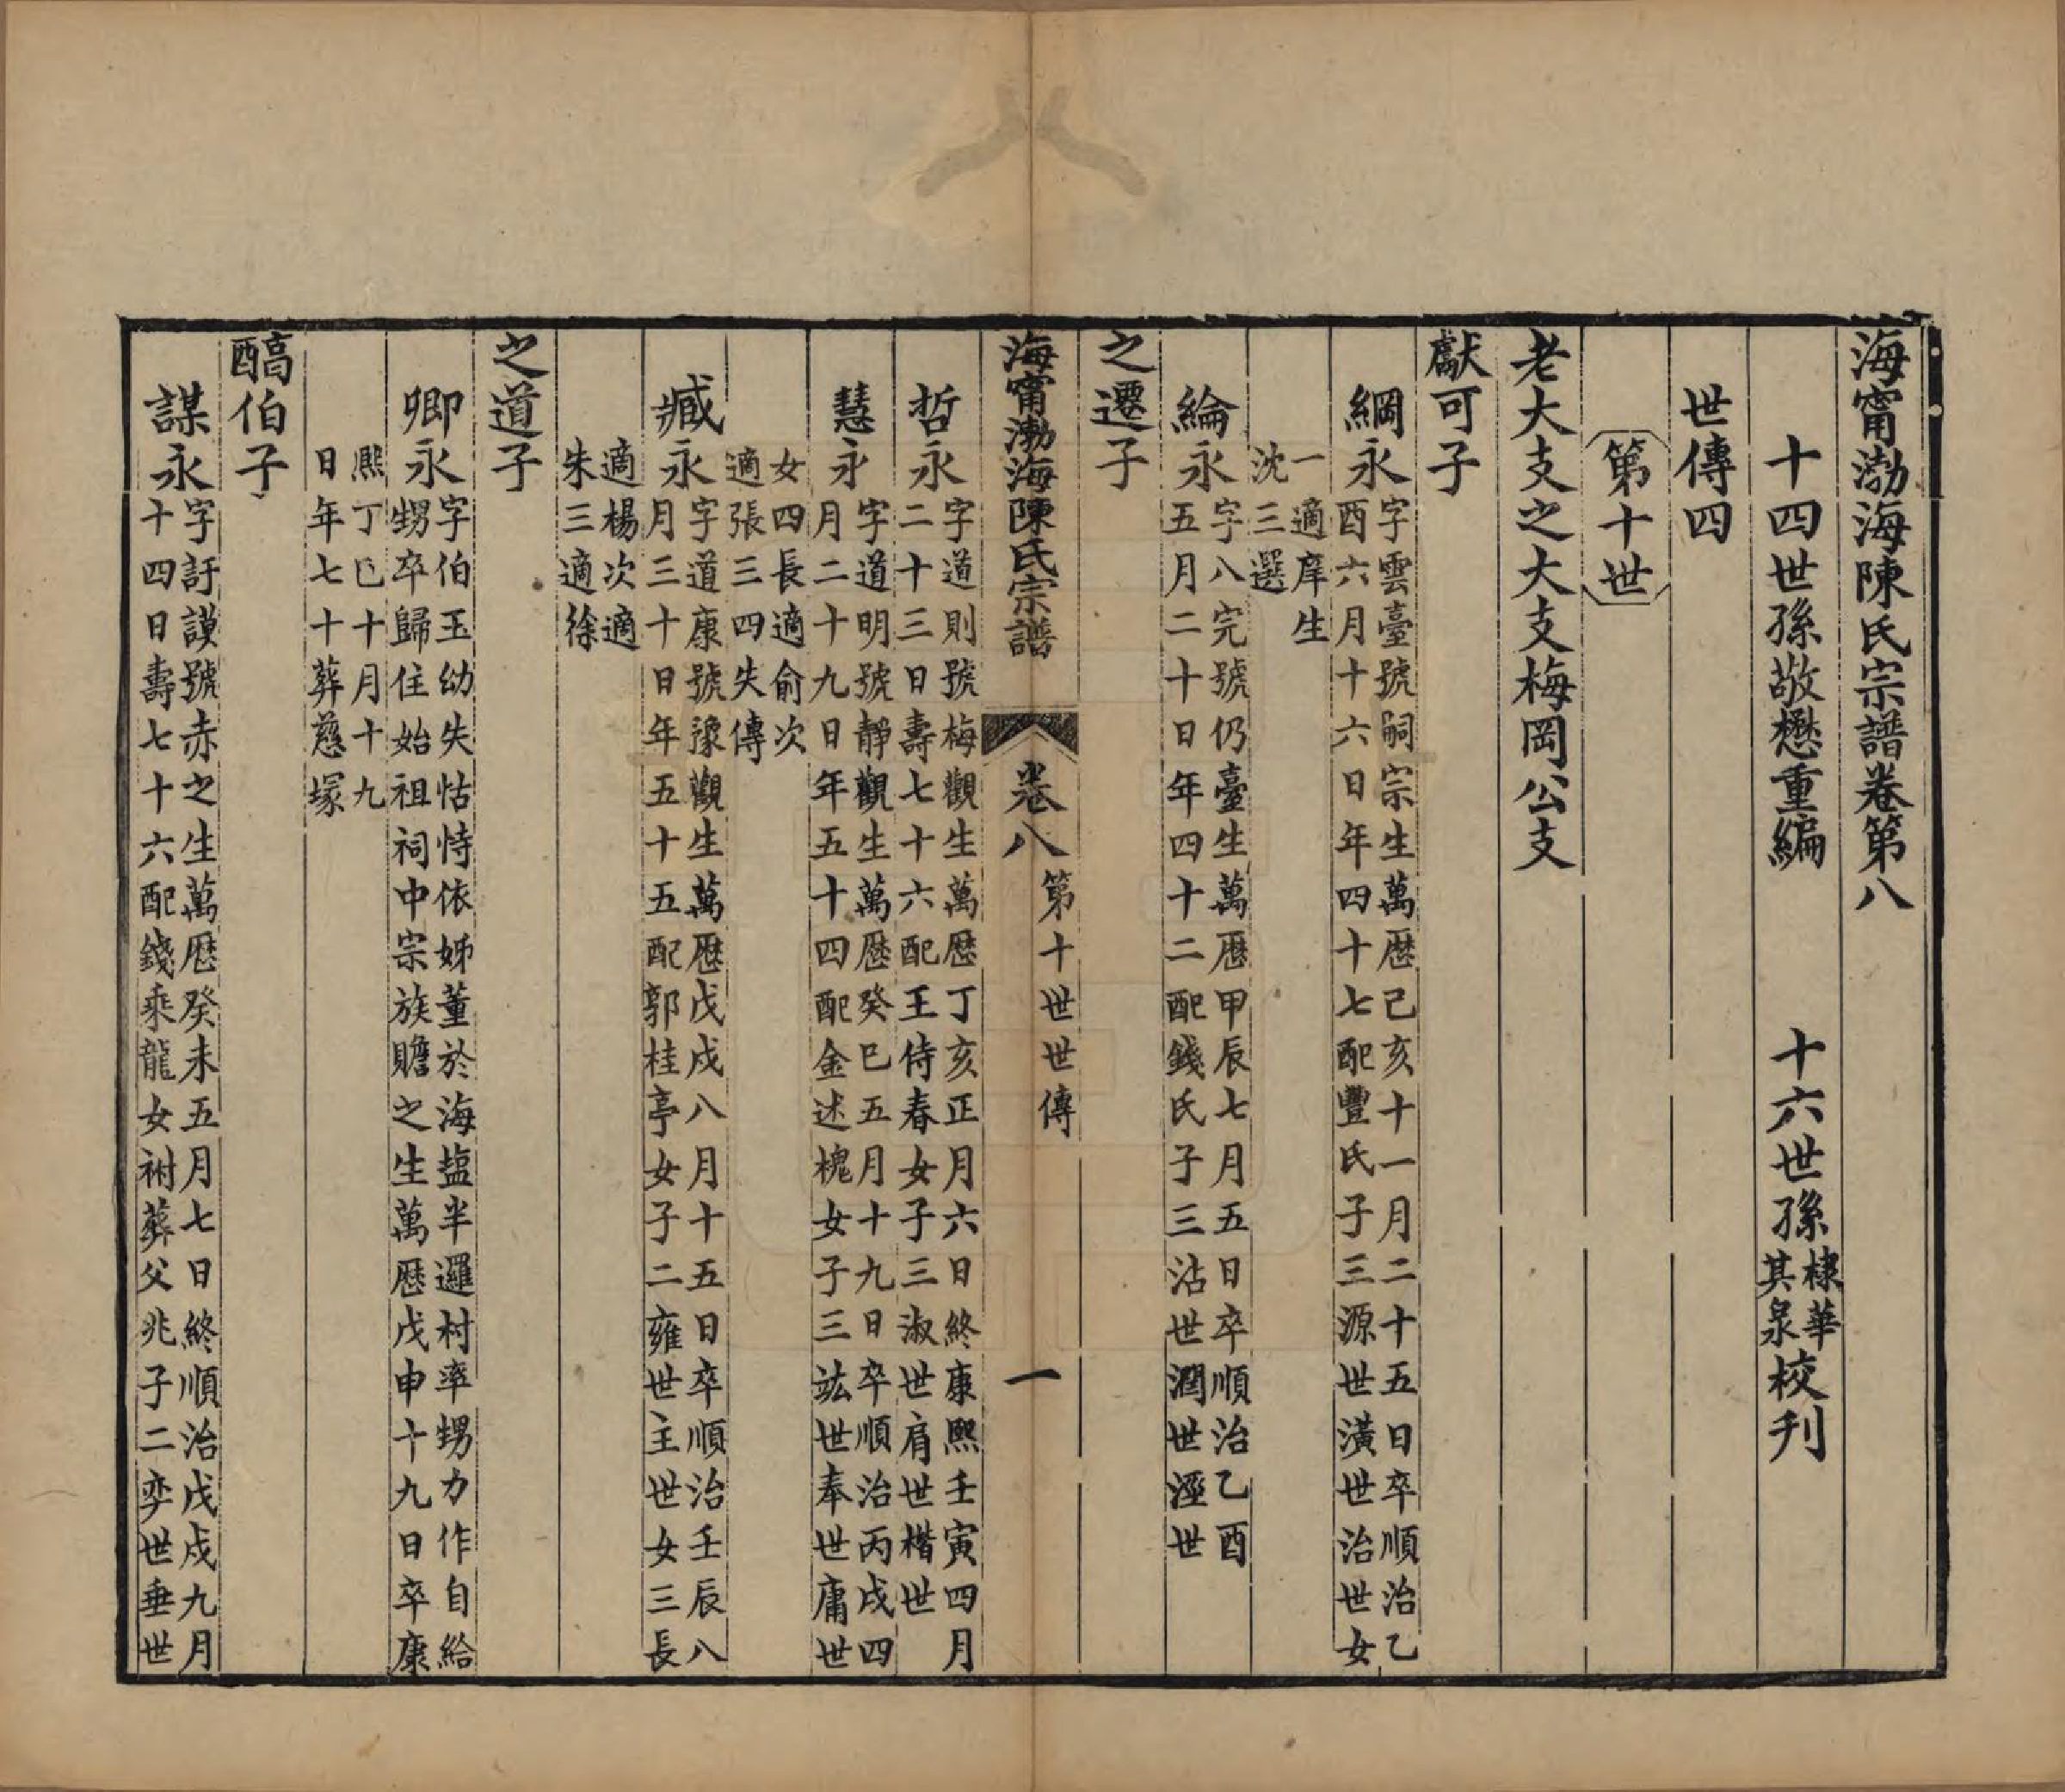 海甯渤海陳氏宗譜卷第八
十四世孫敬懋重編　十六世孫棣華其泉校刋
世傳四
第十世
老大支之大支梅岡公支
獻可子
綱永字雲臺號嗣宗生萬厯己亥十一月二十五日卒順治乙
酉六月十六日年四十七配豐氏子三源世潢世治世女
一適庠生
沈三選
綸永字八完號仍臺生萬厯甲辰七月五日卒順治乙酉
五月二十日年四十二配錢氏子三沾世濶世溼世
之遷子
海甯渤海陳氏宗譜　卷八　第十世世傳　一
哲永字道則號梅觀生萬厯丁亥正月六日終康熙壬寅四月
二十三日壽七十六配王侍春女子三淑世肩世楷世
慧永字道明號靜觀生萬厯癸巳五月十九日卒順治丙戌四
月二十九日年五十四配金述槐女子三竑世奉世庸世
女四長適俞次
適張三四失傳
臧永字道康號豫觀生萬厯戊戌八月十五日卒順治壬辰八
月三十日年五十五配郭桂亭女子二雍世主世女三長
適楊次適
朱三適徐
之道子
卿永字伯玉幼失怙恃依姊董於海塩半邏村率甥力作自給
甥卒歸住始祖祠中宗族贍之生萬厯戊申十九日卒康
熙丁巳十月十九
日年七十葬慈塚
醕伯子
謀永字訏謨號赤之生萬厯癸未五月七日終順治戊戌九月
十四日壽七十六配錢乘龍女祔葬父兆子二弈世垂世